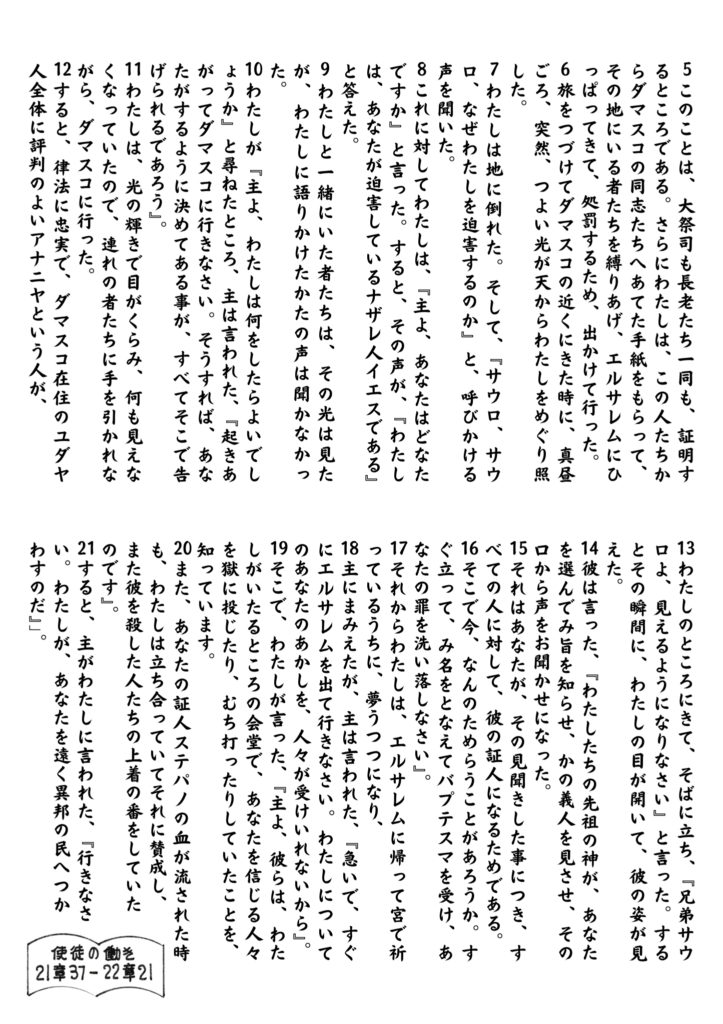 5このことは、大祭司も長老たち一同も、証明す
るところである。さらにわたしは、この人たちか
らダマスコの同志たちへあてた手紙をもらって、
その地にいる者たちを縛りあげ、エルサレムにひ
っぱってきて、処罰するため、出かけて行った。
6旅をつづけてダマスコの近くにきた時に、真昼
ごろ、突然、つよい光が天からわたしをめぐり照
した。
7わたしは地に倒れた。そして、『サウロ、サウ
ロ、なぜわたしを迫害するのか』と、呼びかける
声を聞いた。
8これに対してわたしは、『主よ、あなたはどなた
ですか』と言った。すると、その声が、『わたし
は、あなたが迫害しているナザレ人イエスである』
と答えた。
9わたしと一緒にいた者たちは、その光は見た
が、わたしに語りかけたかたの声は聞かなかっ
た。
10わたしが『主よ、わたしは何をしたらよいでし
ょうか』と尋ねたところ、主は言われた、『起きあ
がってダマスコに行きなさい。そうすれば、あな
たがするように決めてある事が、すべてそこで告
げられるであろう』。
11わたしは、光の輝きで目がくらみ、何も見えな
くなっていたので、連れの者たちに手を引かれな
がら、ダマスコに行った。
12すると、律法に忠実で、ダマスコ在住のユダヤ
人全体に評判のよいアナニヤという人が、
13わたしのところにきて、そばに立ち、『兄弟サウ
ロよ、見えるようになりなさい』と言った。する
とその瞬間に、わたしの目が開いて、彼の姿が見
えた。
14彼は言った、『わたしたちの先祖の神が、あなた
を選んでみ旨を知らせ、かの義人を見させ、その
口から声をお聞かせになった。
15それはあなたが、その見聞きした事につき、す
べての人に対して、彼の証人になるためである。
16そこで今、なんのためらうことがあろうか。す
ぐ立って、み名をとなえてバプテスマを受け、あ
なたの罪を洗い落しなさい』。
17それからわたしは、エルサレムに帰って宮で祈
っているうちに、夢うつつになり、
18主にまみえたが、主は言われた、『急いで、すぐ
にエルサレムを出て行きなさい。わたしについて
のあなたのあかしを、人々が受けいれないから』。
19そこで、わたしが言った、『主よ、彼らは、わた
しがいたるところの会堂で、あなたを信じる人々
を獄に投じたり、むち打ったりしていたことを、
知っています。
20また、あなたの証人ステパノの血が流された時
も、わたしは立ち合っていてそれに賛成し、
また彼を殺した人たちの上着の番をしていた
のです』。
21すると、主がわたしに言われた、『行きなさ
い。わたしが、あなたを遠く異邦の民へつか
わすのだ』」。
使徒の働き
21章37-22章21